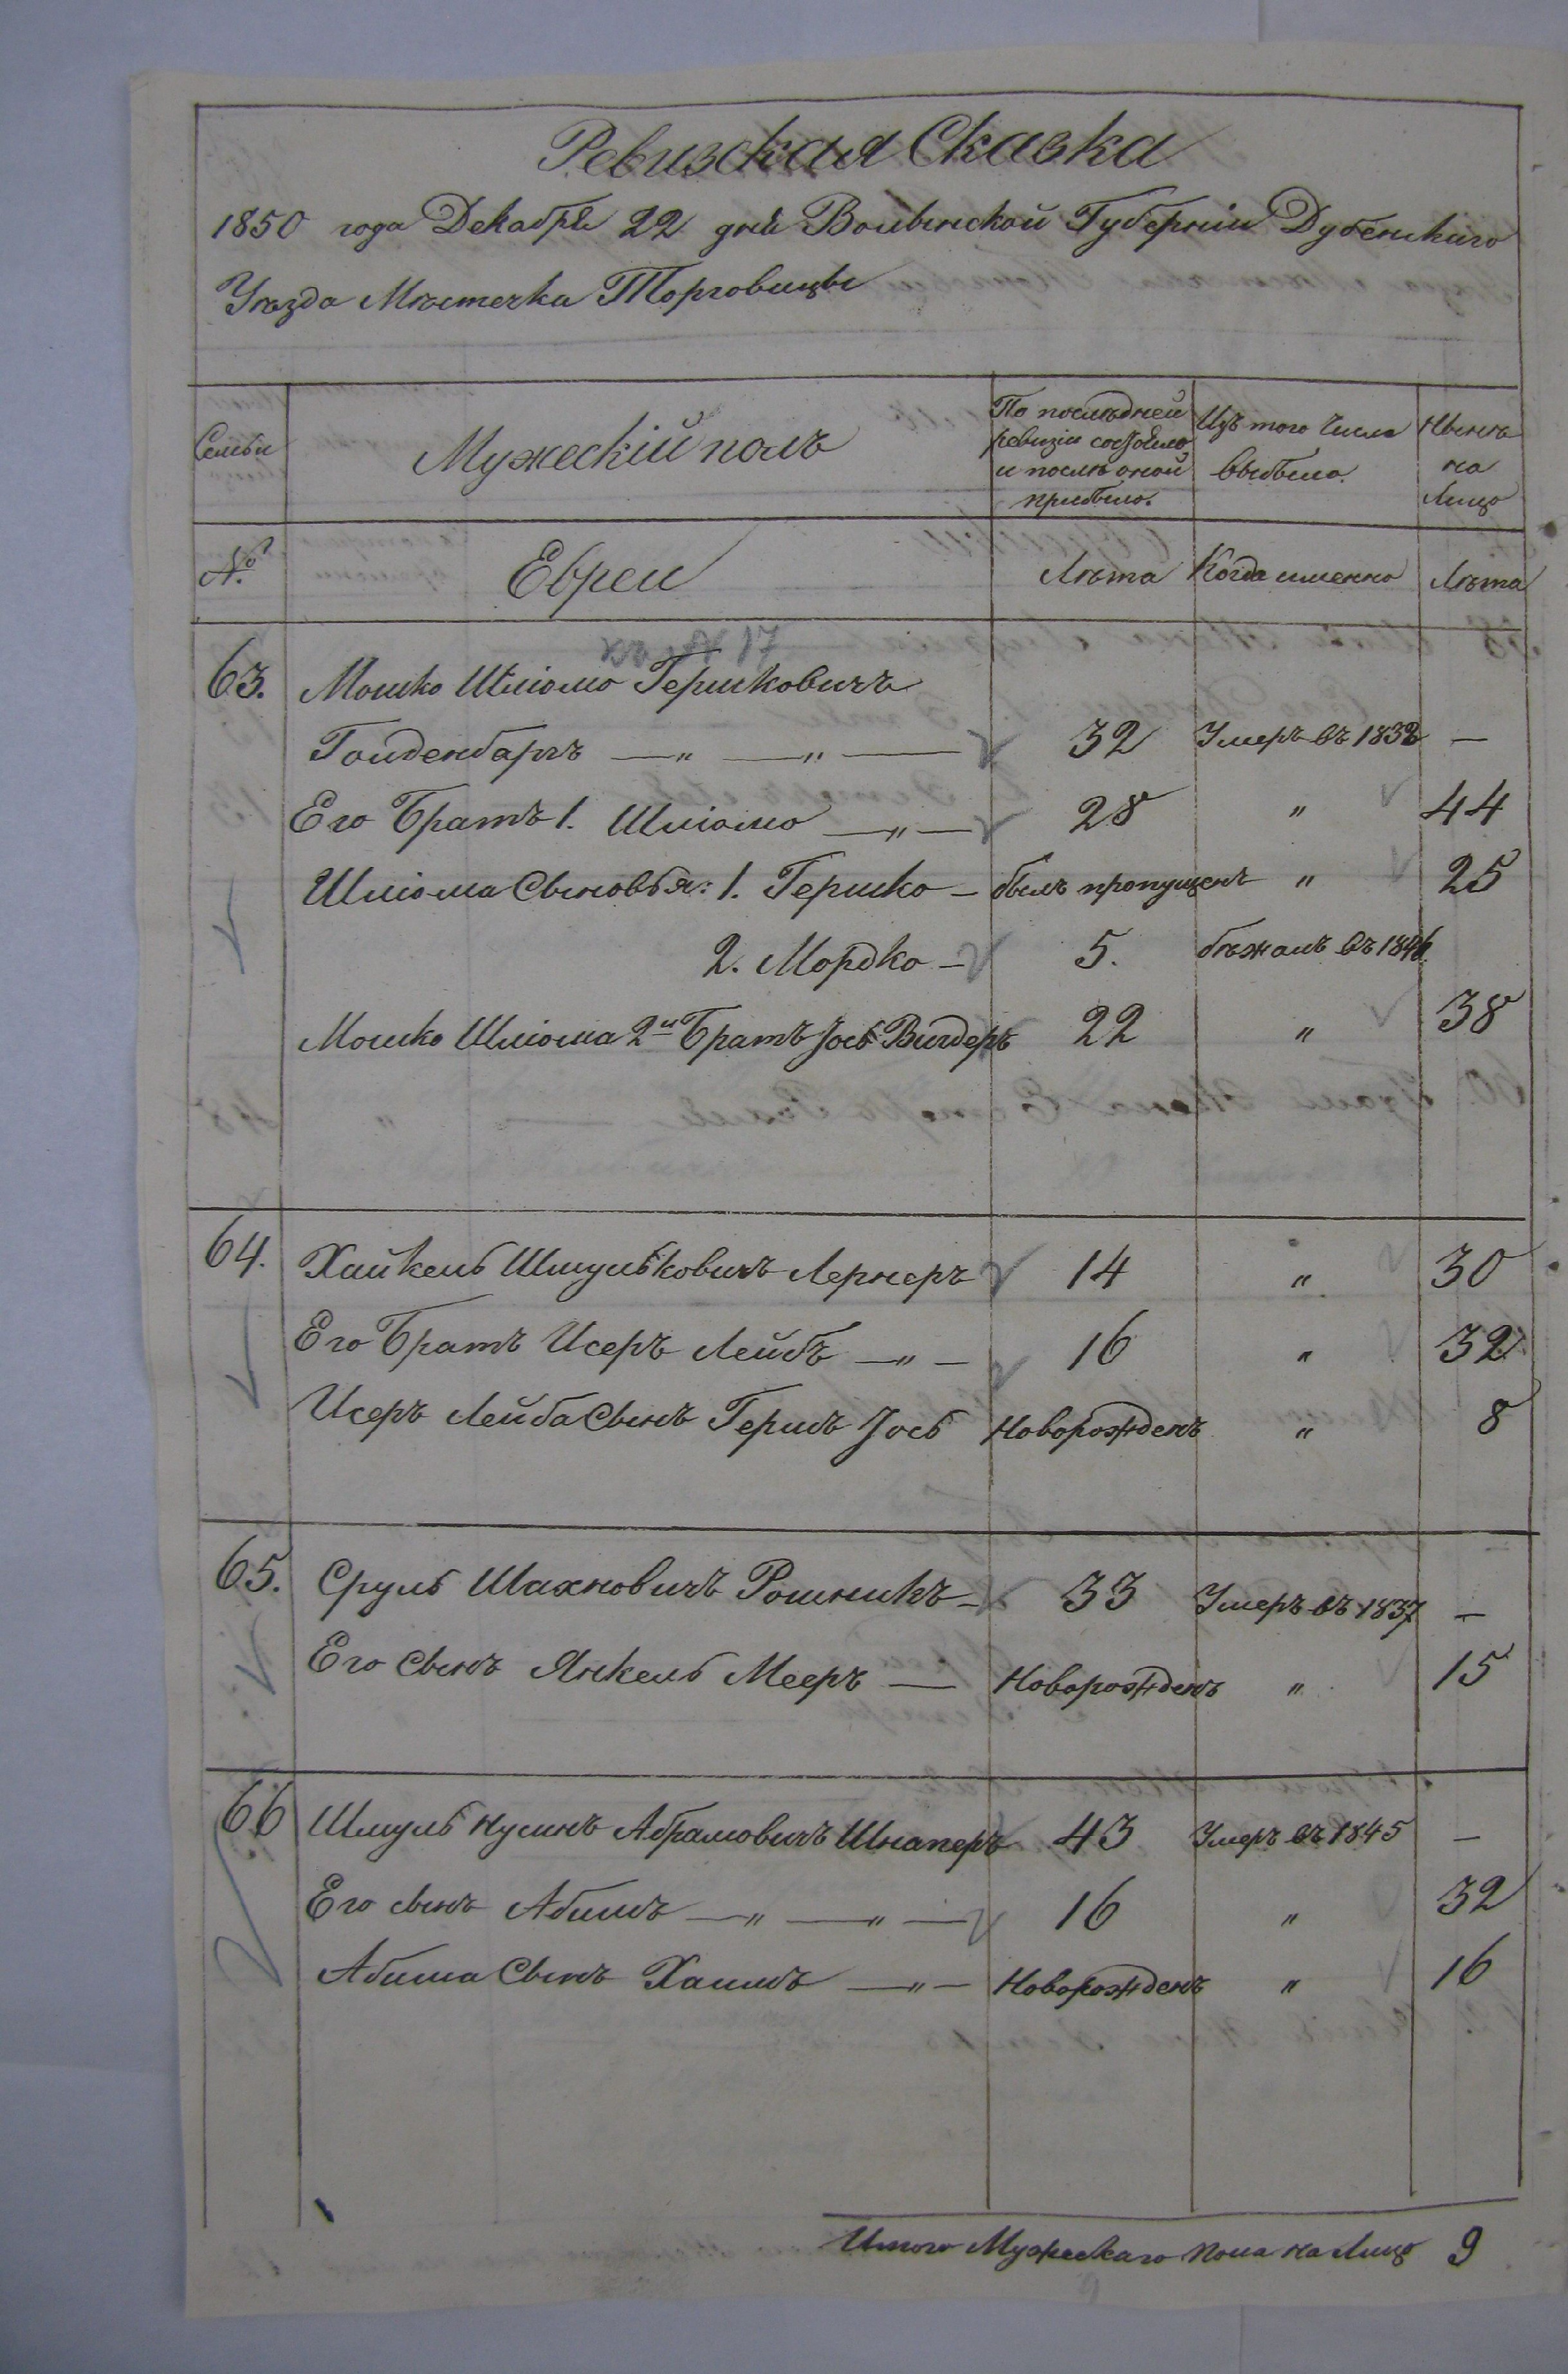 Ревизская Сказка
1850 года Декабря 22 дня Волынской Губерніи Дубенскаго
Уѣзда Мѣстечка Торговицы
Семьи
Мужескій полъ
По послѣдней ревизіи состояло и послѣ оной прибыло.
Изъ того числа выбыло.
Нынѣ на лицо
№
Евреи
Лѣта
Когда именно
Лѣта
63. Мошко Шліомо Гершковичъ
Голденбаргъ —„— —„— 32 Умеръ въ 1832 —
Его Братъ 1. Шліомо —„— 28 „ 44
Шліома Сыновья: 1. Гершко — былъ пропущенъ „ 25
2. Мордко — 5. бѣжалъ въ 1846.
Мошко Шліома 2й Братъ Іось Вигдеръ 22 „ 38
64. Хайкель Шмульковичъ Лернеръ 14 „ 30
Его Братъ Исеръ Лейбъ —„— 16 „ 32
Исеръ Лейба Сынъ Гершъ Іось Новорожденъ „ 8
65. Сруль Шахновичъ Рошникъ — 33 Умеръ въ 1837 —
Его сынъ Янкель Мееръ — Новорожденъ „ 15
66 Шмуль Нусинъ Абрамовичъ Шнаперъ 43 Умеръ въ 1845 —
Его сынъ Абишъ —„— —„— 16 „ 32
Абиша Сынъ Хаимъ —„— Новорожденъ „ 16
Итого Мужескаго пола на Лицо 9